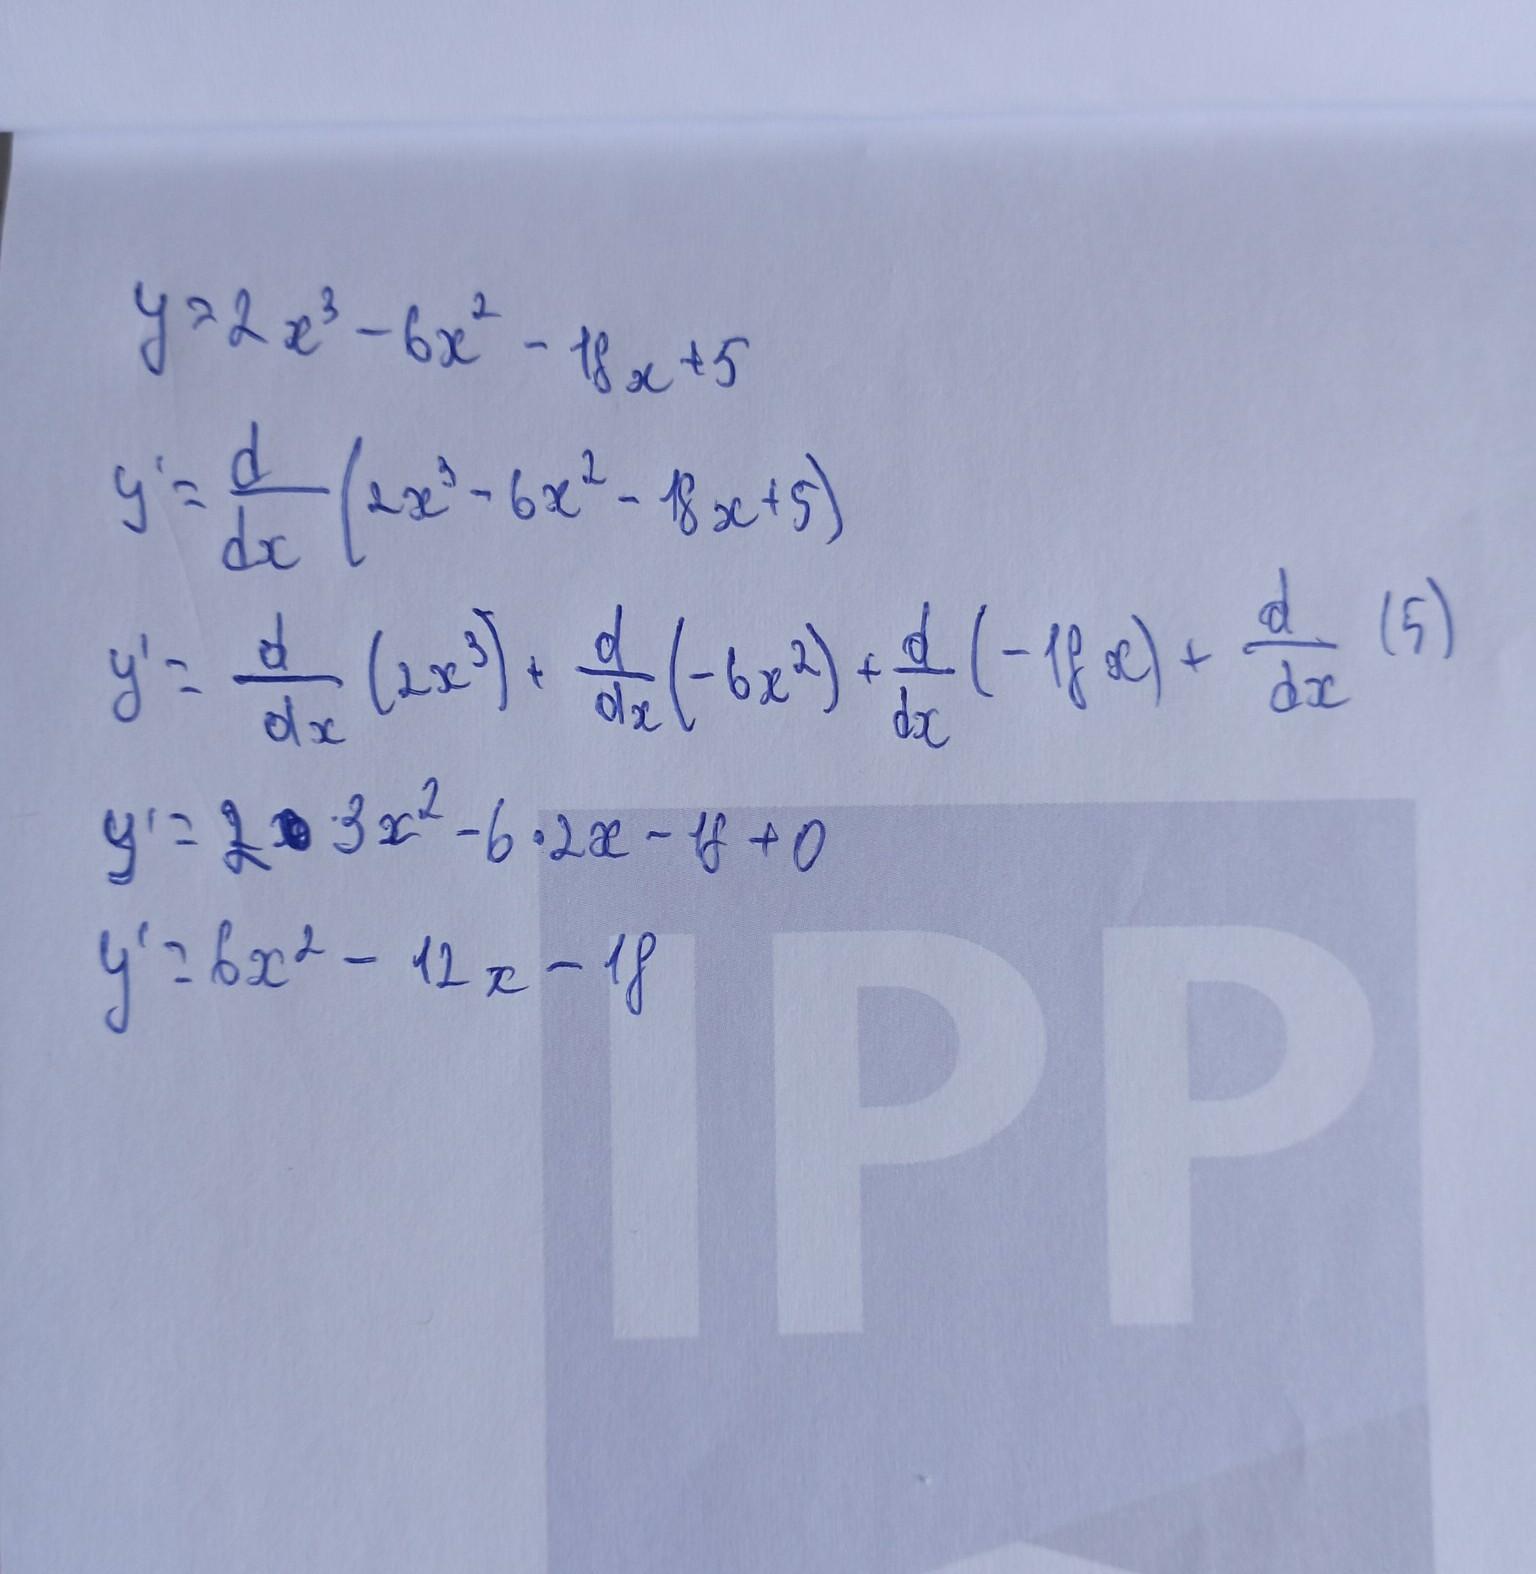 y=2x³-6x²-18x+5
y'=d/dx(2x³-6x²-18x+5)
y'=d/dx(2x³)+d/dx(-6x²)+d/dx(-18x)+d/dx(5)
y'=2·3x²-6·2x-18+0
y'=6x²-12x-18
IPP